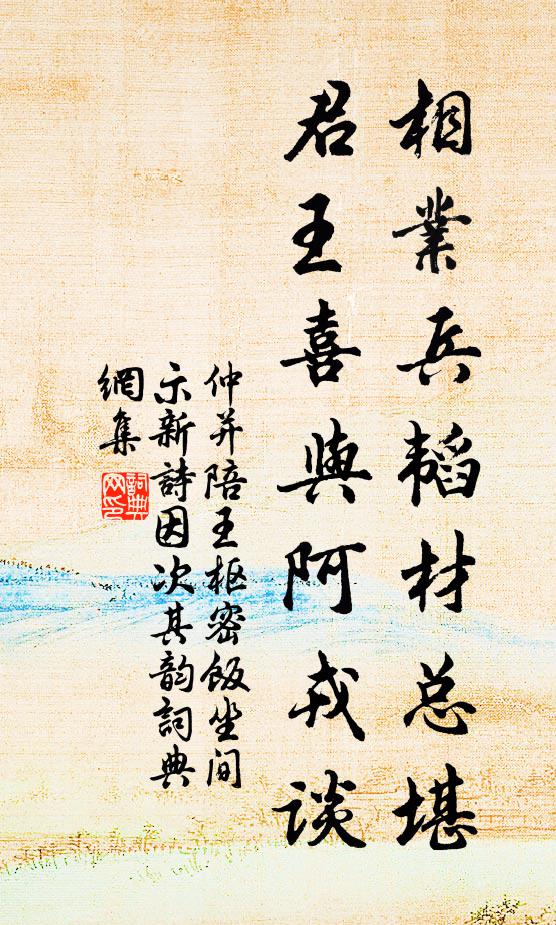 相業兵韬材总堪
君王喜與阿戎談
仲并陪王枢密飯坐间
示新詩因次其韵詞典
網集
詞典
网印